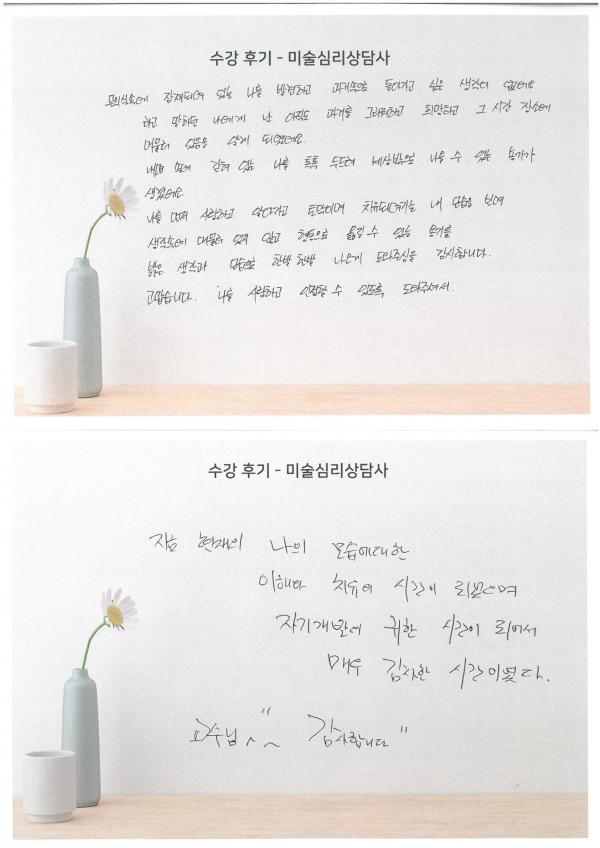 수강 후기 - 미술심리상담사
무의식속에 잠재되어 있는 나를 발견하고 과거속으로 들어가고 싶은 생각이 없어요
하고 말하던 나에게 난 아직도 과거를 그리워하고 희망하고 그 시간 장소에
머물러 있음을 알게 되었어요.
내면 속에 갇혀 있는 나를 톡톡 두드려 세상밖으로 나올 수 있는 용기가
생겼어요
나를 먼저 사랑하고 안아가고 토닥이며 치유되어가는 내 모습을 보며
생각속에 머물러 있지 않고 행동으로 옮길 수 있는 용기를
밝은 생각과 모습으로 한발 한발 나은게 도와주심을 감사합니다.
고맙습니다. 나를 사랑하고 인정할 수 있도록 도와주셔서.
수강 후기 - 미술심리상담사
지금 현재의 나의 모습에대한
이해와 치유의 시간이 되었으며
자기개발에 귀한 시간이 되어서
매우 감사한 시간이였다.
교수님 ^^ "감사합니다"